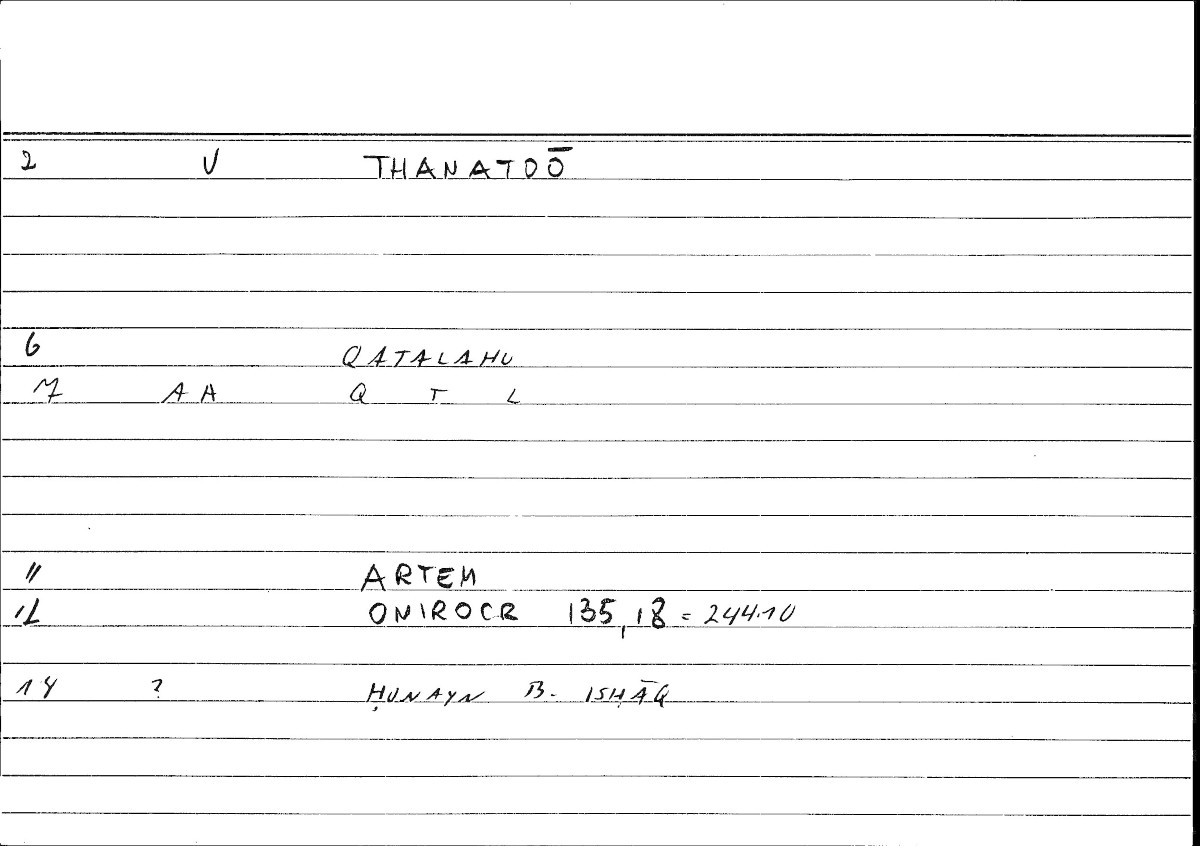 2 V THANATOŌ
6 QATALAHU
7 AA Q T L
11 ARTEM
12 ONIROCR 135,18 = 244.10
14 ? ḤUNAYN B. ISḤĀQ